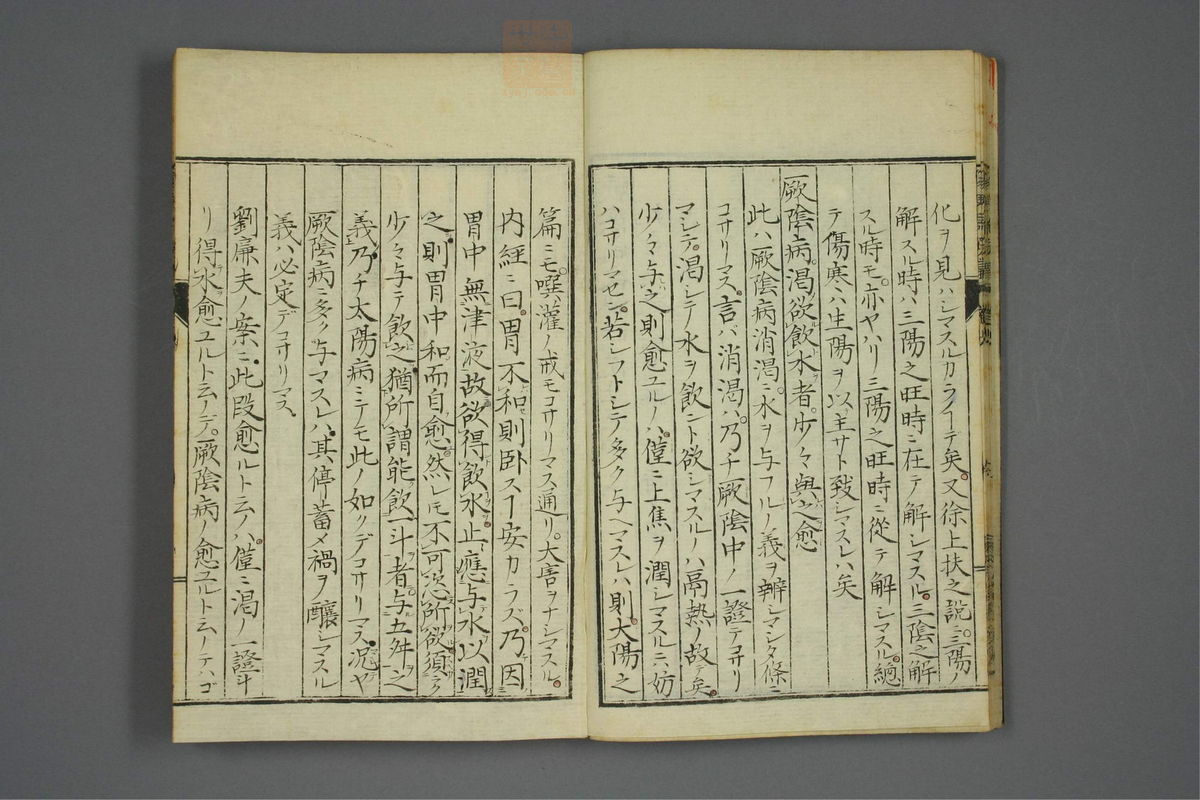 化ヲ見ハシマスルカライデ矣。又徐上扶之説ニ三陽ノ
解スル時ハ、三陽之旺時ニ在テ解シマスル。三陰之解
スル時モ。亦ヤハリ三陽之旺時ニ從テ解シマスル。總
テ傷寒ハ生陽ヲ以、主サト致シマスレハ矣
厥陰病。渴欲飲水者。少々與之愈
此ハ厥陰病消渴ニ。水ヲ与フルノ義ヲ辨マシタ條ニ
コサリマス。言バ消渴ハ。乃チ厥陰中ノ一證テコサリ
マシテ。渴シテ水ヲ飲ント欲シマスルノハ鬲熱ノ故テ矣
少々与之則愈ユルノハ。僅ニ上焦ヲ潤シマスルニハ妨
ハコサリマセン。若シフトシテ多ク与ヘマスレハ則。太陽之
篇ニモ。噀灌ノ戒モコサリマス通リ。大害ヲナシマスル。
内経ニ曰。胃不和則卧スヿ安カラズ。乃因
胃中無津液故欲得飲水止、應与水以潤
之則胃中和而自愈。然レ𪜈不可恣所欲須ク
少々与テ飲之猶所謂能飲一斗者。与五舛之
義。乃チ太陽病ニテモ此ノ如クデコサリマス。况ヤ
厥陰病ニ多ク与マスレハ。其停蓄メ禍ヲ釀シマスル
義ハ必定デコサリマス
劉廉夫ノ案ニ此段愈ルト云ノハ。僅ニ渴ノ一證斗
リ得水愈ユルト云ノデ。厥陰病ノ愈ユルト云ノテハゴ